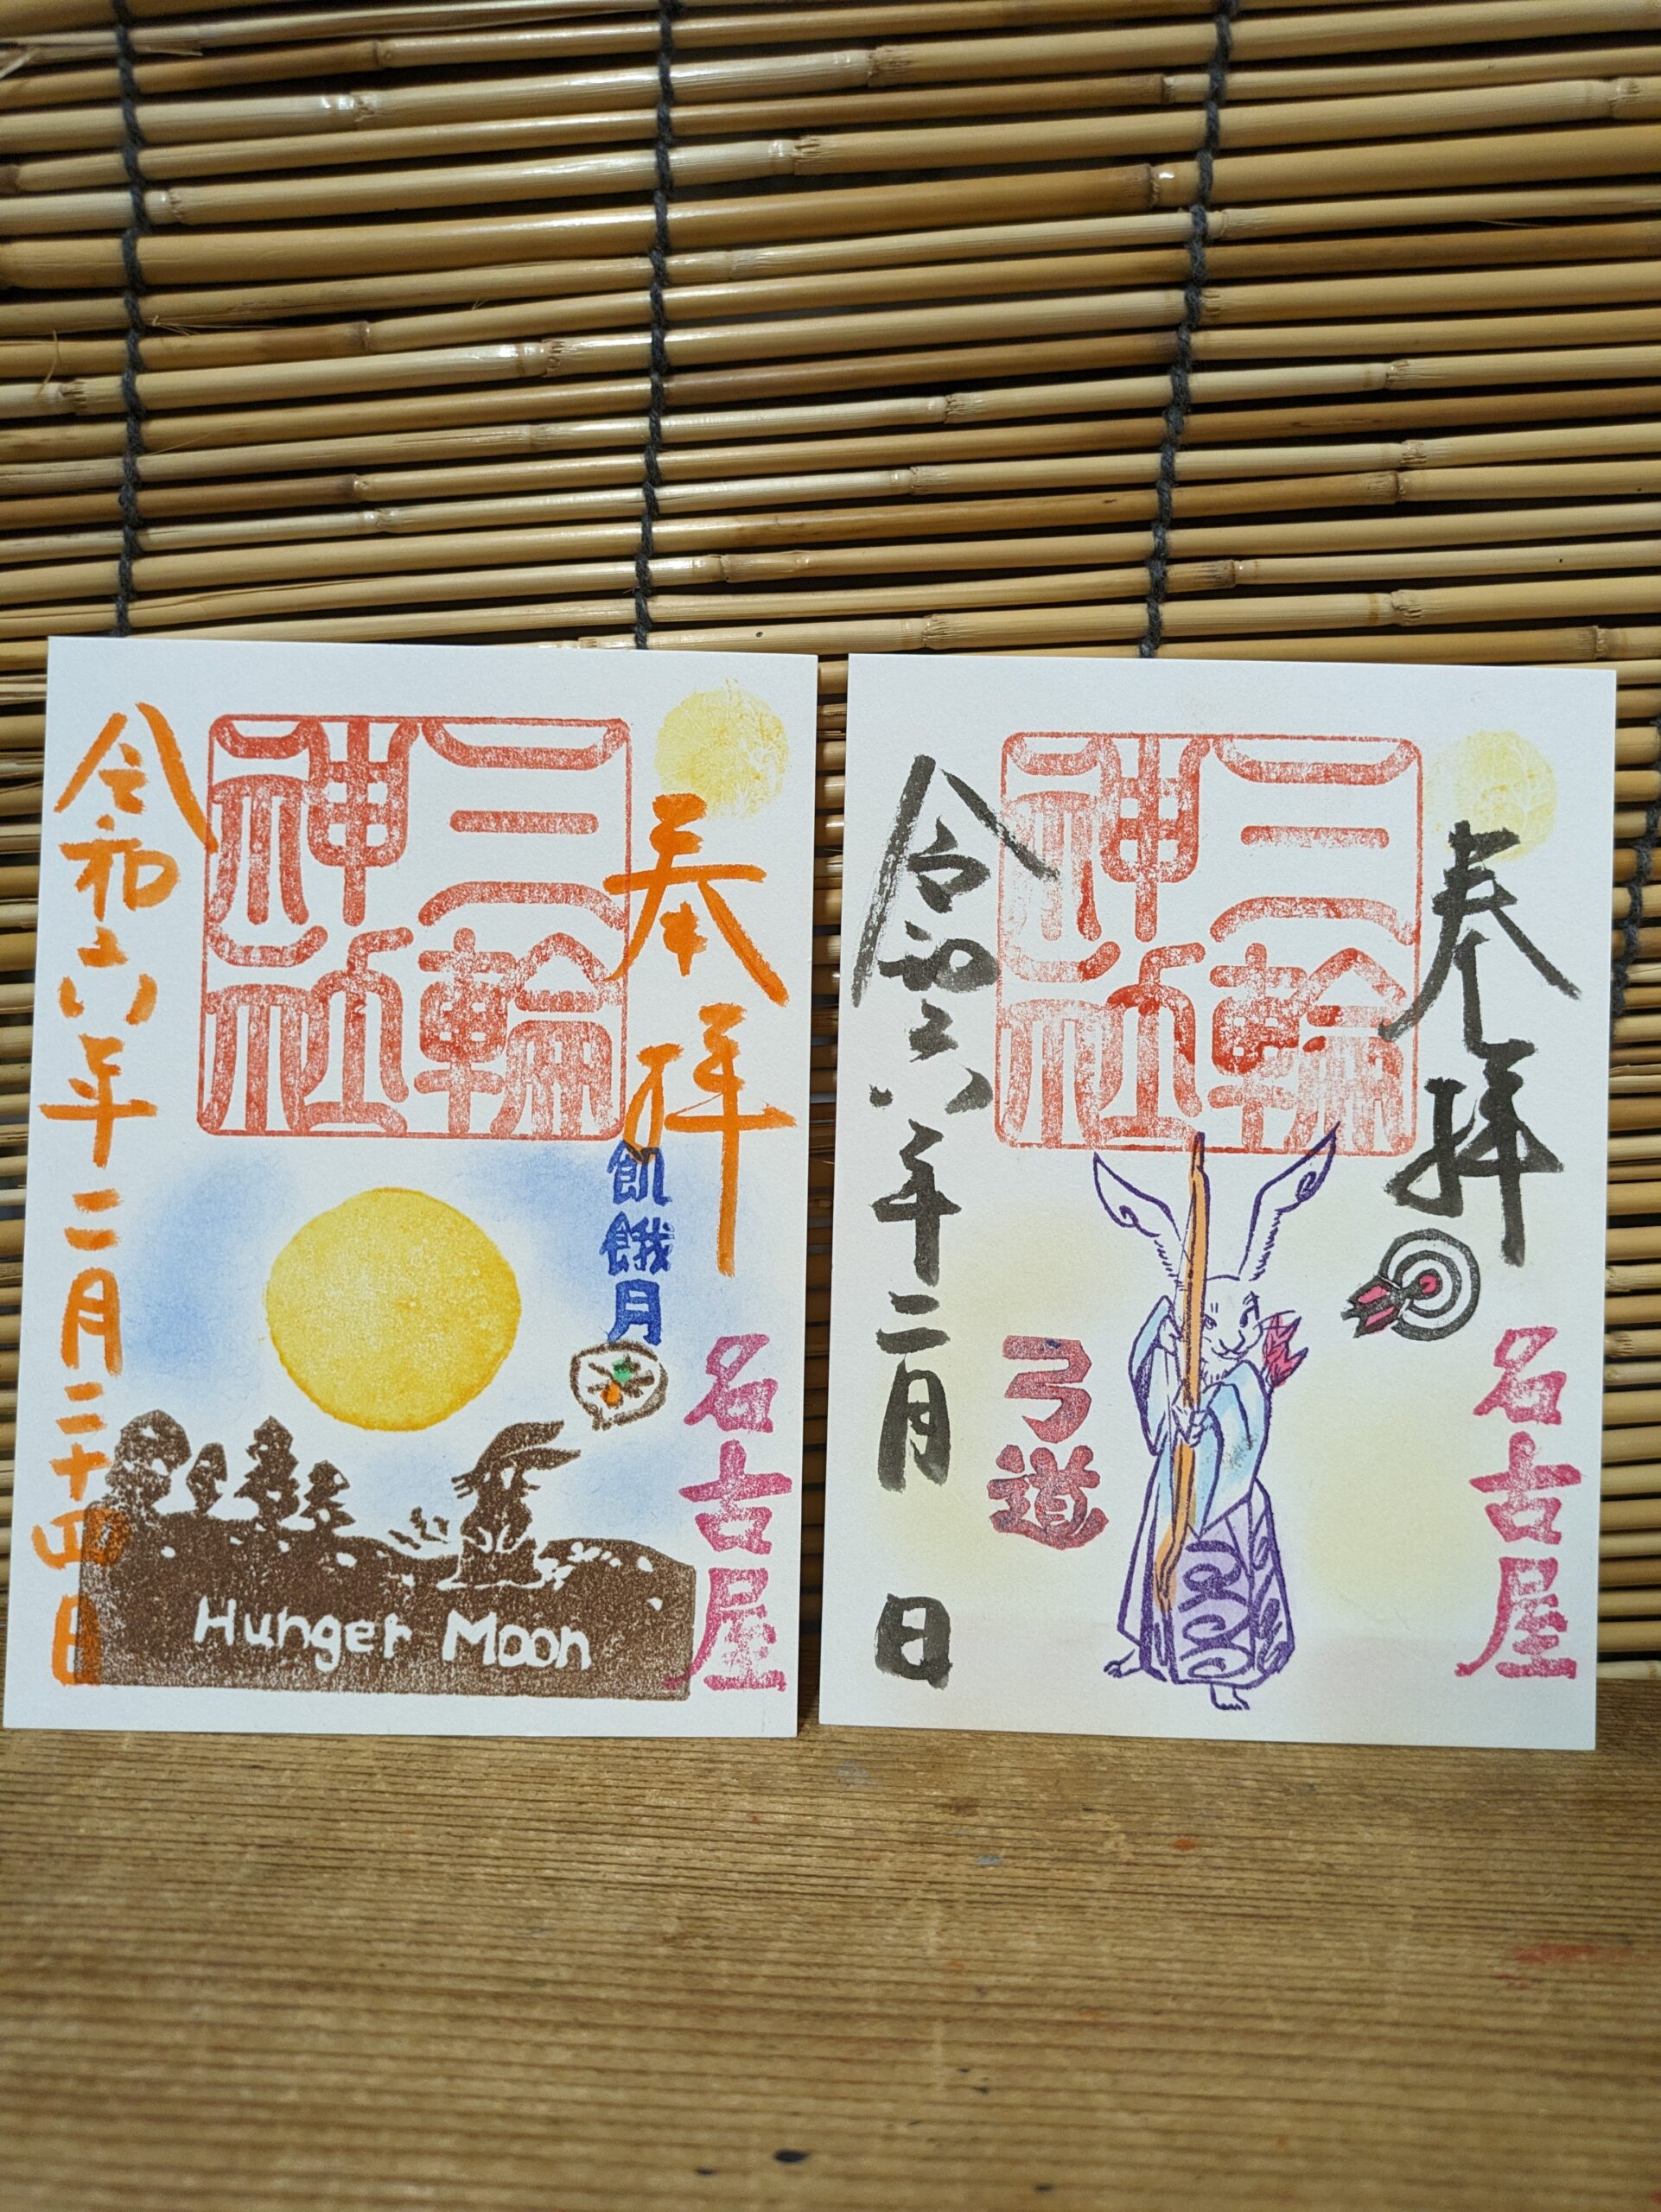 奉拝
三輪神社
令和六年二月二十四日
飢餓月
名古屋
Hunger Moon
奉拝
三輪神社
令和六年二月 日
弓道
名古屋